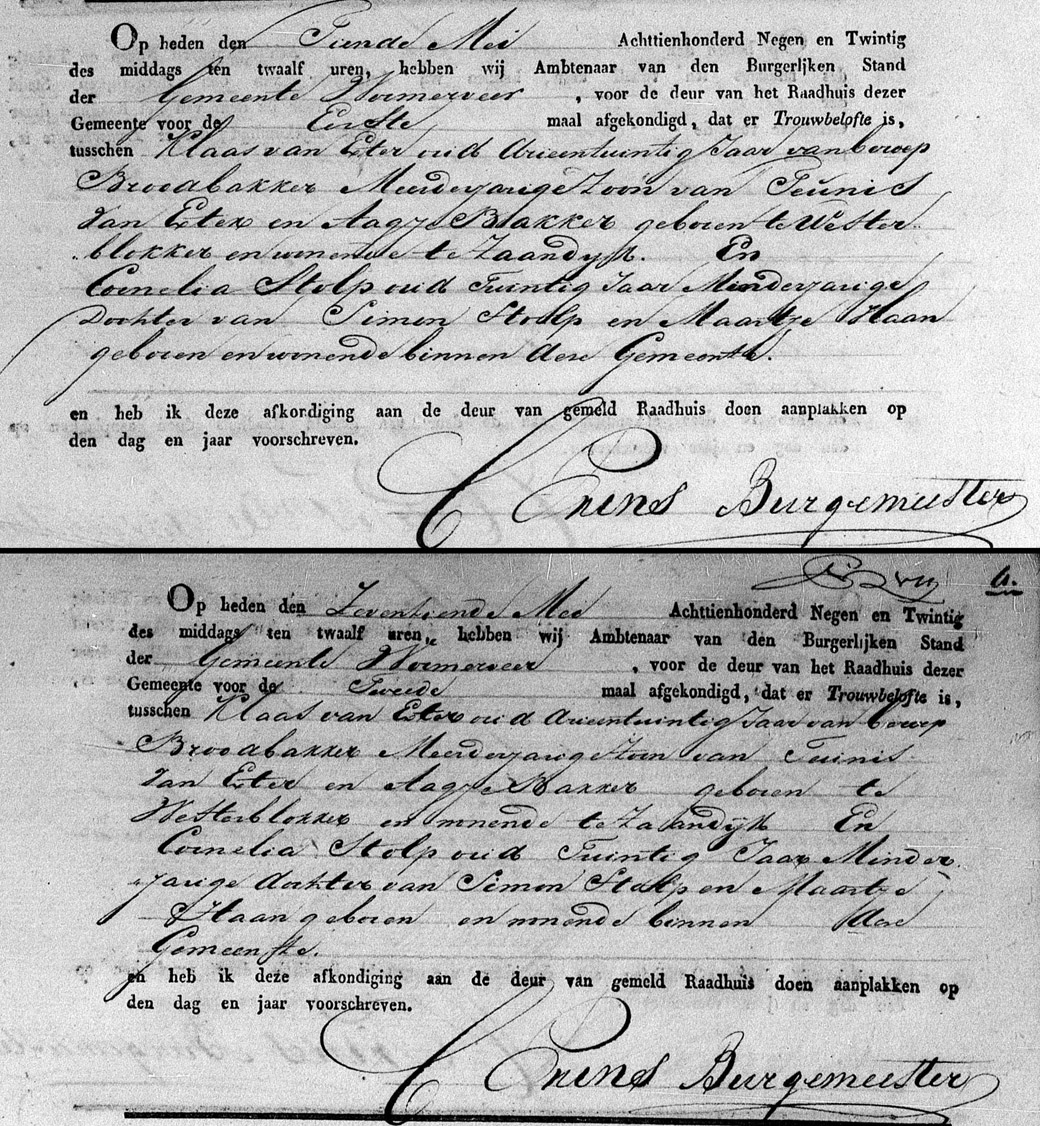 Op heden den Tiende Mei Achttienhonderd Negen en Twintig
des middags ten twaalf uren, hebben wij Ambtenaar van den Burgerlijken Stand
der Gemeente Wormerveer, voor de deur van het Raadhuis dezer
Gemeente voor de Eerste maal afgekondigd, dat er Trouwbelofte is,
tusschen Klaas van Eter oud drieentuintig Jaar van beroep
Broodbakker Meerderjarige Zoon van Teunis
van Eter en Aagje Bakker geboren te Wester
blokker en wonende te Zaandyk. En
Cornelia Stolp oud Tuintig Jaar Minderjarige
Dochter van Simon Stolp en Maartje Haan
geboren en wonende binnen dese Gemeente.
en heb ik deze afkondiging aan de deur van gemeld Raadhuis doen aanplakken op
den dag en jaar voorschreven.
Burgemeester
6.
Op heden den Zeventiende Mei Achttienhonderd Negen en Twintig
des middags ten twaalf uren, hebben wij Ambtenaar van den Burgerlijken Stand
der Gemeente Wormerveer, voor de deur van het Raadhuis dezer
Gemeente voor de Tweede maal afgekondigd, dat er Trouwbelofte is,
tusschen Klaas van Eter oud drieentuintig Jaar van beroep
Broodbakker Meerderjarige Zoon van Teunis
van Eter en Aagje Bakker geboren te
Westerblokker en wonende te Zaandijk En
Cornelia Stolp oud Tuintig Jaar Minder
jarige dochter van Simon Stolp en Maartje
Haan geboren en wonende binnen dese
Gemeente.
en heb ik deze afkondiging aan de deur van gemeld Raadhuis doen aanplakken op
den dag en jaar voorschreven.
Burgemeester